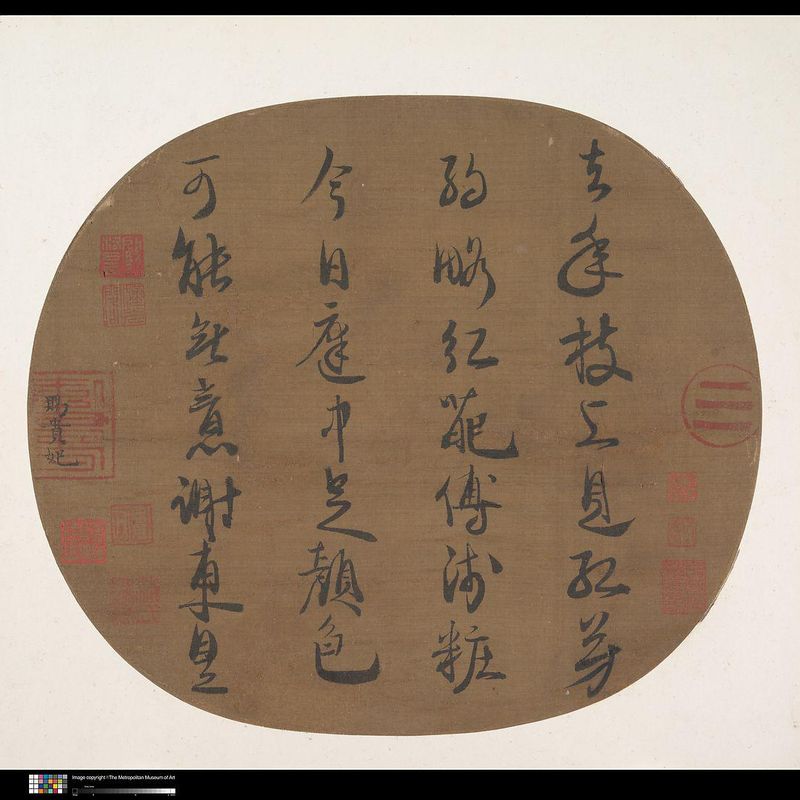 去年枝上見紅芳
約略紅葩傅淺粧
今日庭中足顏色
可能無意謝東皇
賜貴妃
Image copyright ©The Metropolitan Museum of Art